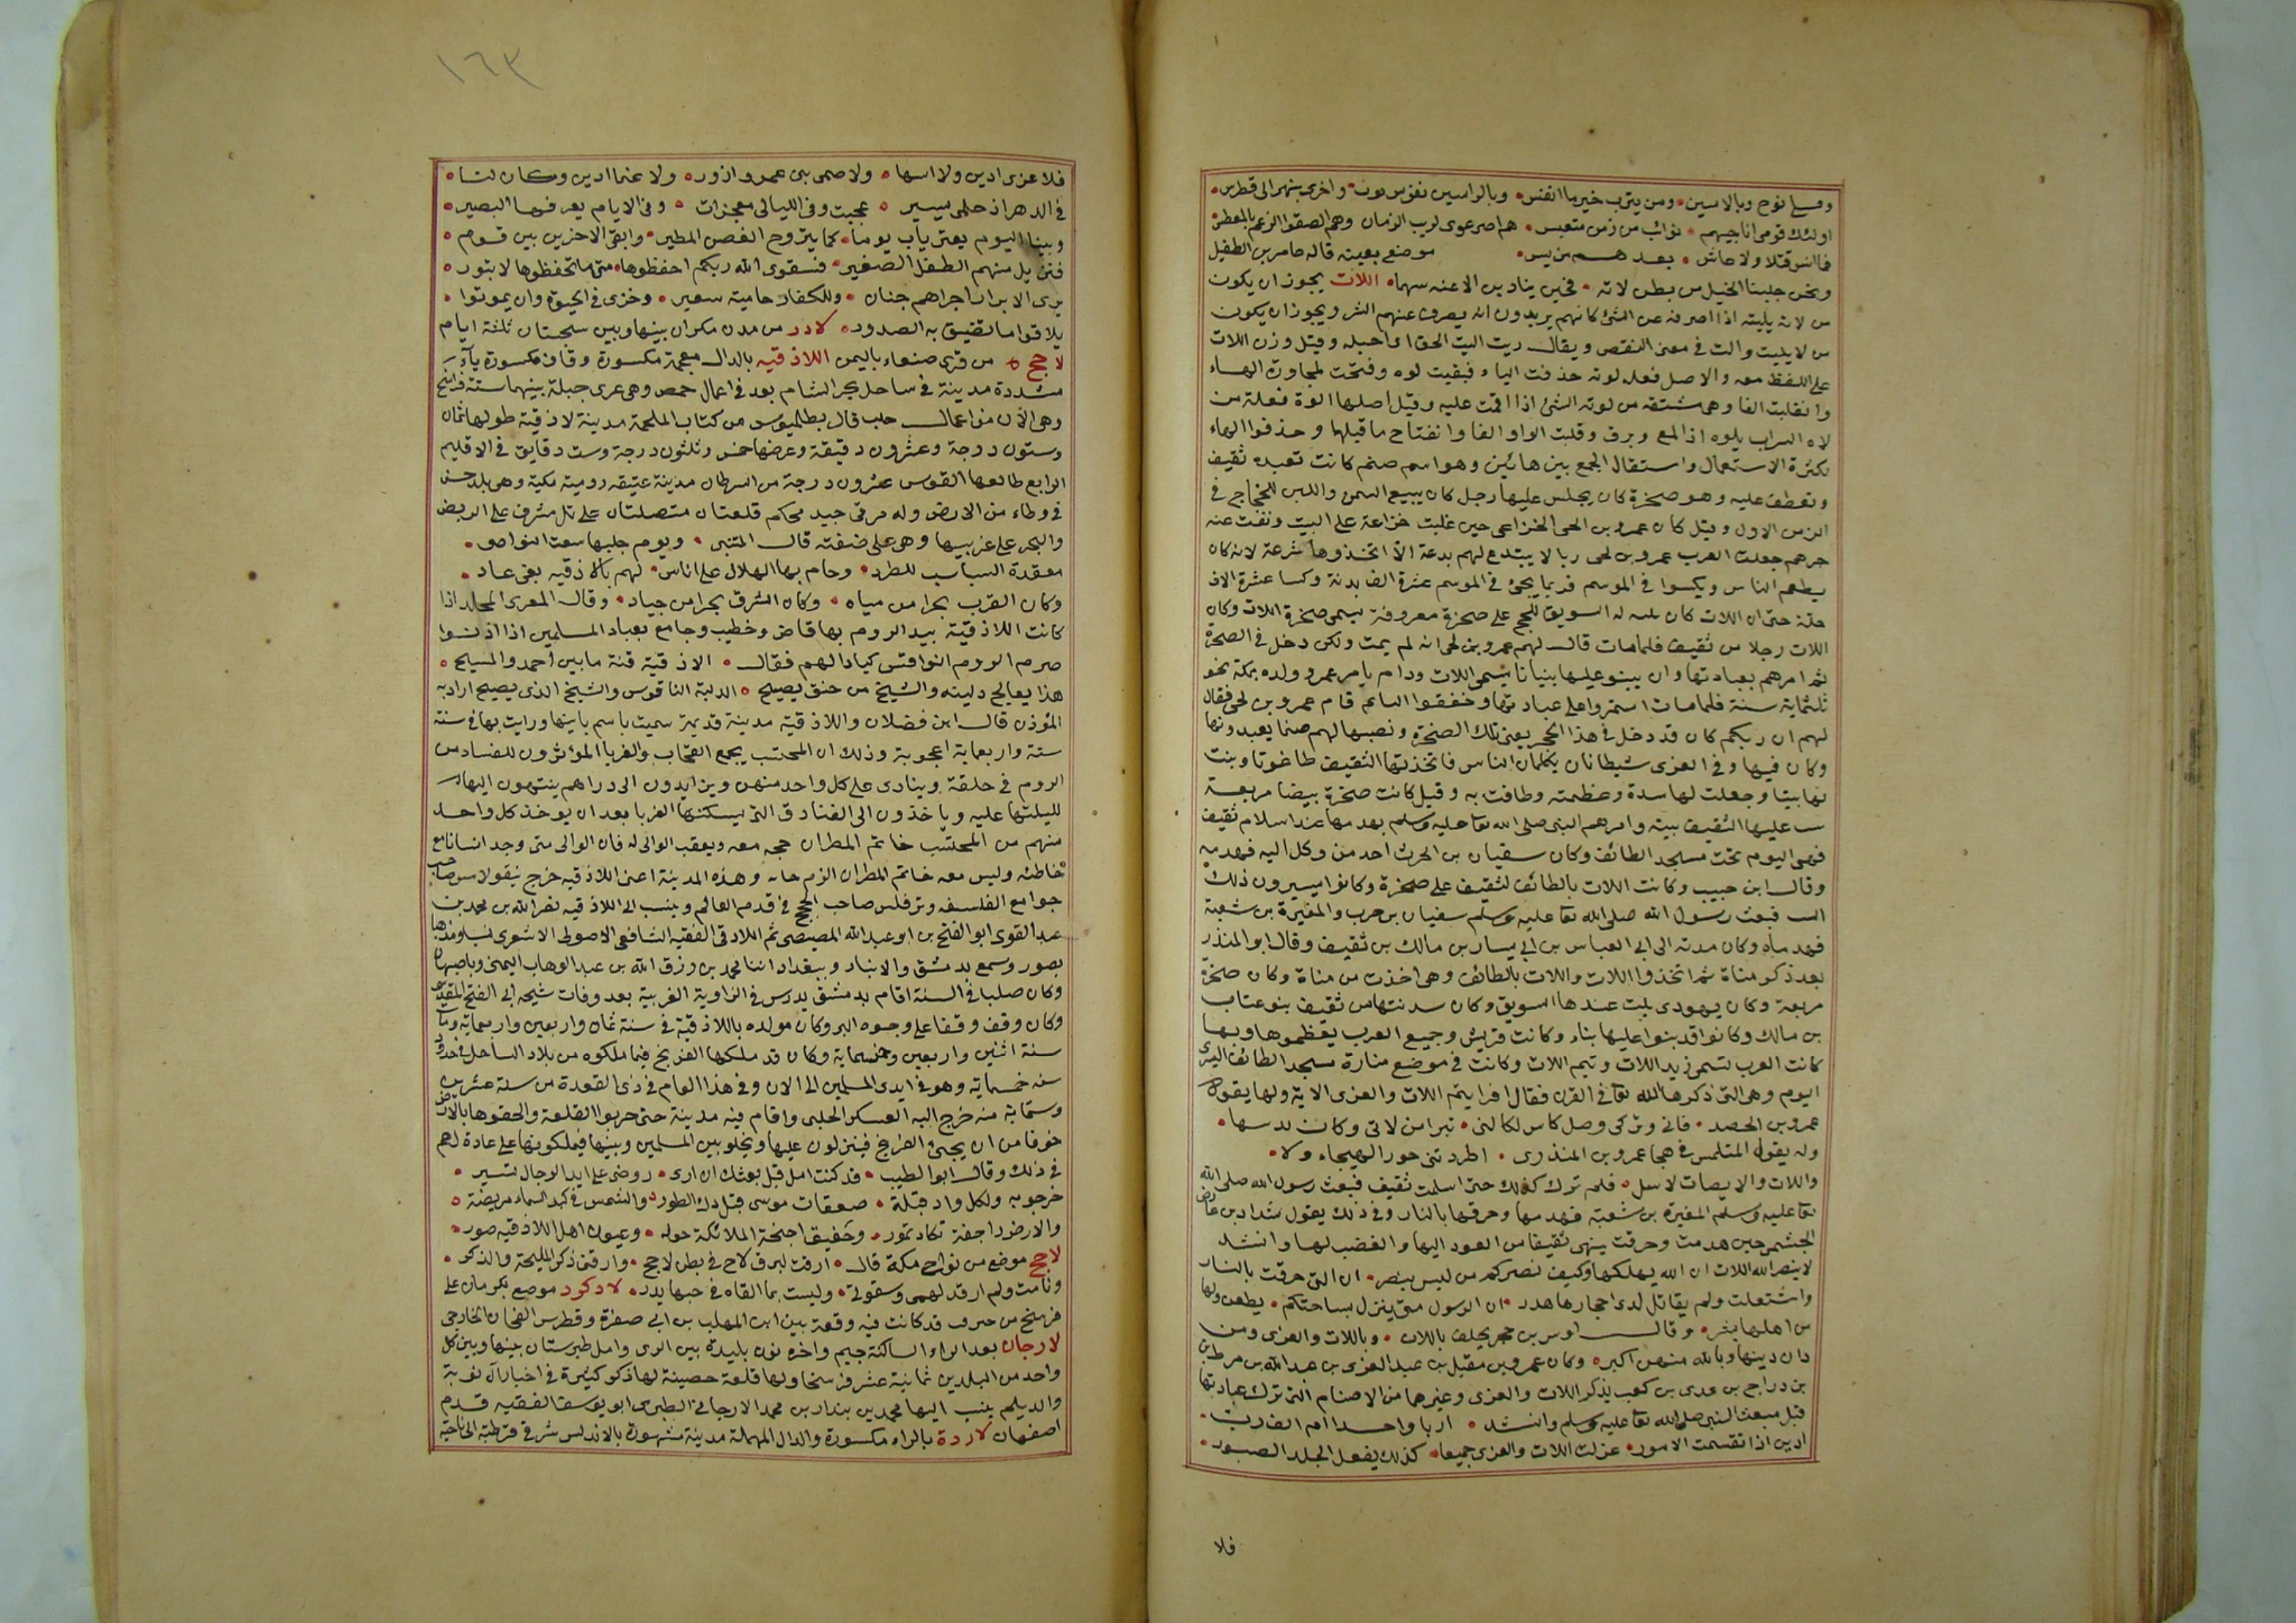 اولئك قومى اناجيهم نوائب من زمن متعبس هم اصرعوى لريب الزمان وهم الصقوا الزعم بالمعطس
موضع بعينه قاله عامر بن الطفيل
ونحن جلبنا الخيل من بطن لاته اللات يجوز ان يكون
من لاته يليته اذا اصرفه عن الشئ كانهم يريدون انه يصرف عنهم الشر ويجوز ان يكون
من لايليت والت فى معنى النقص ويقال
على اللفظ معه والاصل فعله لوته حذفت الياء فبقيت لوه وفتحت لمجاورة الهاء
وانقلبت الفا وهى مشتقه من لوته الشئ اذا اقمت عليه وقيل اصلها الوة فعلة من
لاه السراب يلوه اذا لمع وبرق وقلبت الواو الفا وانفتاح ما قبلها وحذفوا الهاء
لكثرة الاستعمال واستقال الجمع بين هائين وهو اسم صنم كانت تعبده ثقيف
وتعطف عليه وهو صخرة كان يجلس عليها رجل كان يبيع السمن واللبن للحجاج فى
الزمن الاول وقيل كان عمرو بن الحى الخزاعى حين غلبت خزاعة على البيت ونفت عنه
جرهم جعلت العرب عمرو بن لحى ربا لا يبتدع لهم بدعة الا اتخذوها شرعة لانه كان
يطعم الناس ويكسوا فى الموسم فربما يجئ فى الموسم عشرة الف بدنة وكسا عشرة الاف
حلة حتى ان اللات كان له السويق للحج على صخرة معروفة يسمى صخرة اللات وكان
اللات رجلا من ثقيف فلما مات قال لهم عمرو بن لحى انه لم يمت ولكن دخل فى الصخرة
ثم امرهم بعبادتها وان يبنو عليها بنيانا يسمى اللات ودام يامر عمرو وولده بمكة نحو
ثلثماية سنة فلما مات استمروا على عبادتها وخففوا التاء ثم قام عمرو بن لحى فقال
لهم ان ربكم كان قد دخل فى هذا الحجر يعنى تلك الصخرة ونصبها لهم صنما يعبدونها
وكان فيها وفى العزى شيطانان يكلمان الناس فاتخذتها الثقيف طاغوتا وبنت
لها بيتا وجعلت لها سدة وعظمته وطافت به وقيل كانت صخرة بيضا مربعة
بنت عليها الثقيف بيته وامرهم النبى صلى الله تعا عليه وسلم بهدمها عند اسلام ثقيف
فهى اليوم تحت مسجد الطائف وكان سفيان بن الحرث احد من وكل اليه فهدمه
وقال ابن حبيب وكانت اللات بالطائف لثقيف على صخرة وكانوا يسيرون ذلك
البيت فبعث رسول الله صلى الله تعا عليه وسلم سفيان بن حرب والمغيرة بن شعبة
فهدماه وكان سدنته الى ابى العباس بن ابى يسار بن مالك بن ثقيف وقال ابو المنذر
بعد ذكر مناة ثم اتخذوا اللات واللات بالطائف وهى اخذت من مناة وكان صخرة
مربعة وكان يهودى يلت عندها السويق وكان سدنتها من ثقيف بنو عتاب
بن مالك وكانوا قد بنوا عليها بناء وكانت قريش وجميع العرب يعظموها وبها
كانت العرب تسمى زيد اللات وتيم اللات وكانت فى موضع منارة مسجد الطائف اليسرى
اليوم وهى التى ذكرها الله تعا فى القرن فقال افرايتم اللات والعزى الاية ولها يقول
عمرو بن الجعد فانى وتركى وصل كاس لكالذى تبرا من لاتى وكان يدينها
وله يقول المتلمس فى هجا عمرو بن المنذرى اطردتنى حذر الهجاء ولا
واللات والانصاب لا تيل فلم تزل كذلك حتى اسلمت ثقيف فبعث رسول الله صلى الله
تعا عليه وسلم المغيرة بن شعبة فهدمها وحرقها بالنار وفى ذلك يقول شداد بن عارض
الجشمى حين هدمت وحرقت ينهى ثقيفا من العود اليها والغضب لها وانشد
لا ينصر الله اللات ان الله يهلكها وكيف نصركم من ليس ينصر ان التى حرقت بالنار
واشتعلت ولم يقاتل لدى احجارها هدر ان الرسول متى ينزل بساحتكم يظعن ولها
من اهلها بشر وقال اوس بن حجر يحلف باللات وباللات والعزى ومن
دان دينها وبالله منهن اكبره وكان عمرو بن نفيل بن عبد العزى بن عبد الله بن
بن رزاح بن عدى بن كعب يذكر اللات والعزى وغيرهما من الاصنام التى ترك عبادتها
قبل مبعث النبى صلى الله تعا عليه وسلم وانشد اربا واحدا ام الف رب
ادين اذا تقسمت الامور عزلت اللات والعزى جميعا كذلك يفعل الجلد الصبور
فلا
١٦٣
فلا عزى ادين ولا ابنتها ولا صنمى بنى عمرو ازور ولا غنما ادين وكان لنا
فى الدهر اذ حلمى يسير عجبت وفى الليالى معجزات وفى الايام يعرفها البصير
وبينا اليوم يعتر ياب يوما كما يتروح الغصن المطير وابقى الاخرين بين قوم
منهم الطفل الصغير فتقوى الله ربكم احفظوها متى ما تحفظوها لا تبور
ترى الابرار اجراهم جنان وللكفار حامية سعير وخزى فى الحيوة وان يموتوا
يلاقوا ما تضيق به الصدور لادر من مدن مكران بينها وبين سجستان ثلثة ايام
لاجج من قرى صنعاء باليمن اللاذقيه بالذال معجمة مكسورة وقاف مكسورة ياؤ
مشددة مدينة فى ساحل بحر الشام بعد فى اعمال حمص وهى غربى جبلة بينهما ستة فراسخ
وهى الان من اعمال حلب قال بطلميوس من كتاب الملحمة مدينة لاذقية طولها ثمان
وستون درجة وعشرون دقيقة وعرضها خمس وثلثون درجة وست دقايق فى الاقليم
الرابع طالعها القوس عشرون درجة من السرطان مدينة عتيقه رومية مكية وهى بلد حسن
فى وطاء من الارض وله مرفى جيد محكم قلعتان متصلتان على تل مشرف على الربض
والبحر على غربيها وهى على ضفته قال المتنبى ويوم جلبها شعث النواصى
معقدة السبايب للطراد وحام بها الهلال على اناس لهم باللاذقيه بغى عاد
وكان الغرب بحرا من مياه وكان الشرق بحرا من جياد وقال المعرى الملحد اذا
كانت اللاذقية بيد الروم بها قاض وخطيب وجامع بعباد المسلمين اذا اذنوا
ضرم الروم النواقس كيادا لهم فقال الاذقية فتنة ما بين احمد والمسيح
هذا يعالج دلبة والشيخ من حنق يصيح الدلبة الناقوس والشيخ الذى يصيح اراد به
المؤذن قال ابن فضلان واللاذقية مدينة قديمة سميت باسم بانيها ورايت بها فى سنة
ستة واربعماية اعجوبة وذلك ان المحتسب يجمع القحاب والغربا المؤثرون للفساد من
الروم فى حلقة وينادى على كل واحد منهن ويزايدون الى دراهم ينتهون اليها
لليلتها عليه وياخذون الى الفنادق التى يسكنها الغربا بعد ان يوخذ كل واحد
منهم من المحتسب خاتم المطران حجه معه ويعقب الوالى له فان الوالى متى وجد انسانا مع
خاطئه وليس معه خاتم المطران الزم وهذه المدينة اعنى اللاذقيه خرج نيقولاس صاحب
جوامع الفلسفه وترفلس صاحب الحجج فى قدم العالم وينسب الى اللاذقيه نصر الله بن محمد بن
عبد القوى ابو الفتح بن ابو عبد الله المصيصى ثم اللاذقى الفقيه الشافعى الاصولى الاشعرى نسبا ومذهبا
بصور وسمع بدمشق والانبار وببغداد محمد بن رزق الله بن عبد الوهاب التميمى وباصبهان
وكان صلبا فى السنة اقام بدمشق يدرس فى الزاوية الغربية بعد وفات شيخه ابى الفتح المقدسى
وكان وقف وقفا على وجوه البر وكان مولده باللاذقية فى سنة ثمان واربعين واربعماية ومات
سنة اثنين واربعين وخمسماية وكان قد ملكها الفرنج فيما ملكوه من بلاد الساحل فى حدود
سنه خمسماية وهو فى ايدى المسلمين الى الان وفى هذا العام فى ذى القعدة من سنة عشرين
وستماية منه خرج اليه العسكر الحلبى واقام فيه مدينة حتى خربوا القلعة والحقوها بالارض
خوفا من ان يجئ الفرنج فينزلون عليها ويحلو بين المسلمين وبينها فيملكونها على عادة لهم
فى ذلك وقال ابو الطيب قد كنت امل قبل بعثك ان ارى رضوى على ايد الرجال تسير
خرجو به ولكل واد قبلة صعقات موسى قبل دك الطور والشمس فى كبد السماء مريضة
والارض راجفة تكاد تمور وحفيف اجنحة الملائكة حوله وعيون اهل اللاذقيه صور
لاجج موضع من نواحى مكة قال ارقت لبرق لاح فى بطن لاجج وارقنى ذكر المليحة والذكر
ونامت ولم ارقد لهمى وشقوتى وليست بما القاه فى حبها يدر لادكرد موضع بكرمان على
فرسخ من جيرفت قد كانت فيه وقعة بين ابن المهلب بن ابى صفرة وقطرى الفجان الخارجى
لارجان بعد الراء الساكنة جيم واخره نون بليدة بين الرى وامل طبرستان بينها وبين كل
واحد من البلدين ثمانية عشر فرسخا ولها قلعة حصينة لها ذكر كثيرة فى اخبار آل بويه
والديلم ينسب اليها محمد بن بندار بن محمد الارجانى الطبرى ابو يوسف الفقيه قدم
اصفهان لاردة بالراء مكسورة والدال المهملة مدينة مشهورة بالاندلس شرقى قرطبة الى ناحية